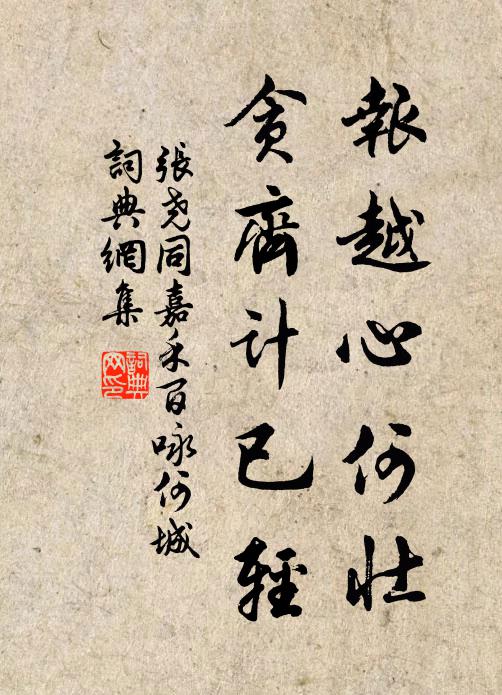 報越心何壯
貪齊計已輕
張尧同嘉禾百咏何城
詞典網集
詞典網印